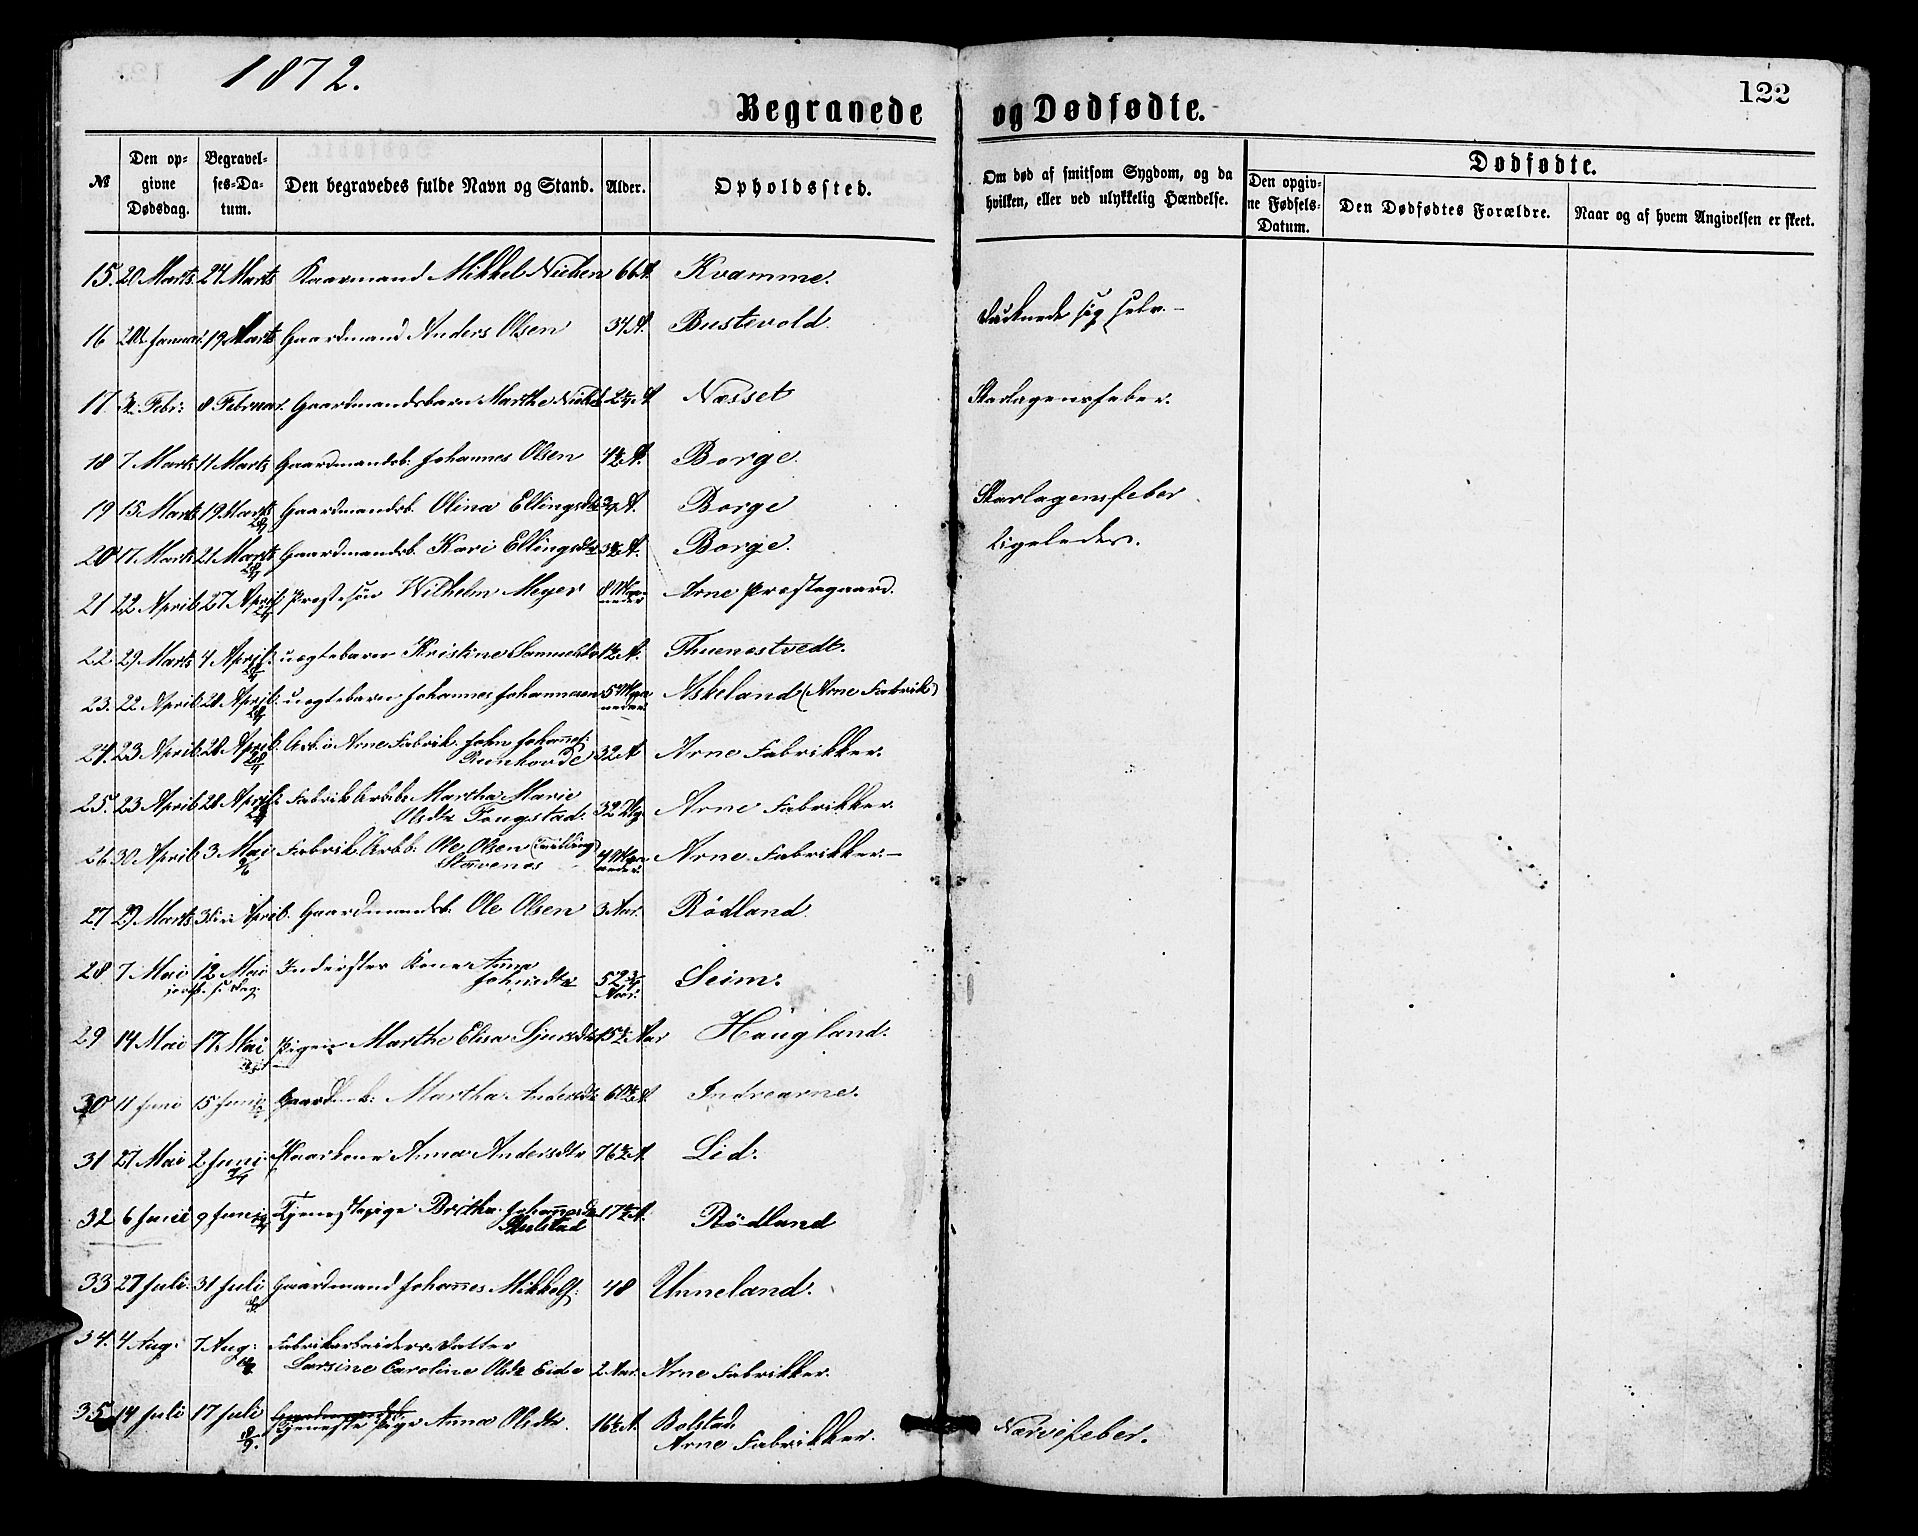 1872.
122
Begravede og Dødfødte.
№
Den opgivne Dødsdag.
Begravelses-Datum.
Den begravedes fulde Navn og Stand.
Alder.
Opholdssted.
Om død af smitsom Sygdom, og da hvilken, eller ved ulykkelig Hændelse.
Dødfødte.
Den opgivne Fødsels-Datum.
Den Dødfødtes Forældre.
Naar og af hvem Angivelsen er skeet.
15. 20 Marts 27 Marts Kaarmand Mikkel Nielsen 66 A. Kvamme.
16 Januar 19 Marts Gaardmand Anders Olsen 34 A. Bustevold. Druknede sig selv.
17 Febr: 8 Februar. Gaardmandsbarn Marthe Næsset Skarlagensfeber.
18 7 Marts 11 Marts Gaardmandsb. Johannes Olsen Borge.
19 15 Marts 19 Marts Gaardmandsb. Olina Ellingsdtr Borge Skarlagensfeber
20 17 Marts 21 Marts Gaardmandsb. Kari Ellingsdtr Borge. Ligeledes.
21 22 April 27 April Prestesøn Wilhelm Meyer 8 Maaneder Arne Præstegaard.
22 29 Marts 4 April: uægtebarn Kristine Samuelsdtr Thuenestvedt.
23. 22 April 28 April: uægtebarn Johannes Johannesen 5 Maaneder Askeland (Arne Fabrik)
24. 23 April 28 April: Arb. i Arne Fabrik John Johannes: Runhovde 32 A Arne Fabrikker.
25. 23 April 28 April: Fabrik Arbb: Martha Marie
Olsdtr Tougstad. 32 Arne Fabrikker.
26 30 April 3 Mai Fabrik Arbb. Ole Olsen (Tvilling)
Stavenes Maaneder. Arne Fabrikker.—
27 29 Marts April. Gaardmandsb: Ole Olsen 3 Aar. Rödland
28. 7 Mai 12 Mai Inderstes Kone Anna
Johnsdtr 52 Aar. Seim.
29 14 Mai 17 Mai Pigen Marthe Elisa Sjursdtr 15½ Aar Haugland.
30 11 Juni 15 Juni Martha Andersdtr 60½ A Indrearne.
31 27 Mai 2 Juni. Kaarkone Anna Andersdtr 76½ A. Lid.
32 6 Juni 9 Juni Tjenestepige Britha Johannesdtr
Hulstad 17½ A. Rödland
33 27 Juli. 31 Juli Gaardmand Johannes Mikkels: 48 Unneland.
34. 4 Aug: 7 Aug: Fabrikarbeiders Datter
Larsine Caroline Olsdtr Eide 2 Aar. Arne Fabrikker.
35 14 Juli 17 Juli Tjeneste Pige Anna Olsdtr. 16½ A. Bolstad.
Arne Fabrikker. Nervefeber.